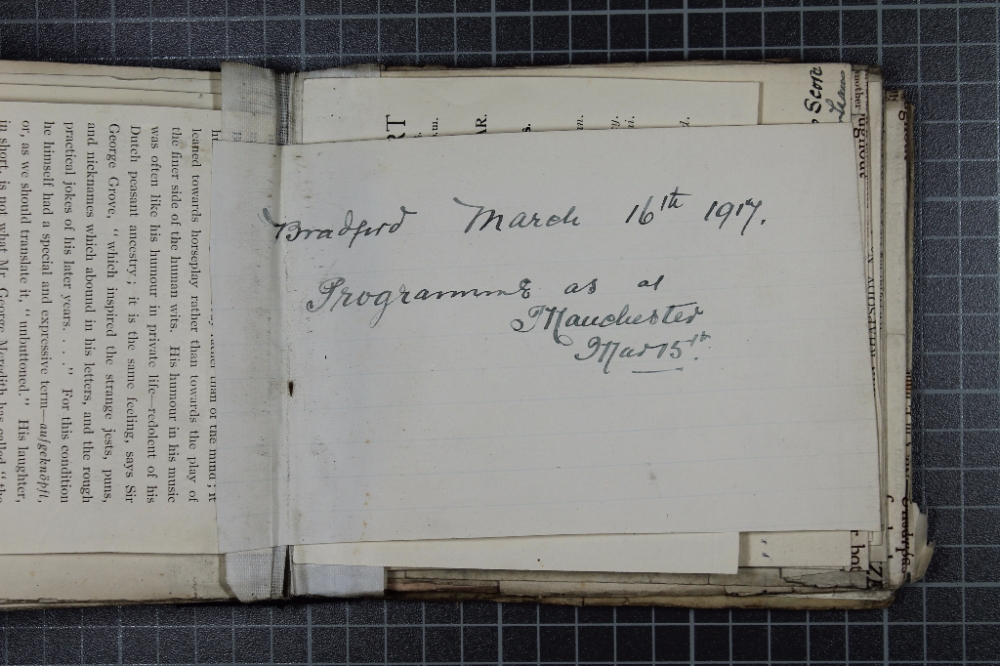 Bradford March 16th 1917.
Programme as at
Manchester
Mar 15th.
leaned towards horseplay rather than towards the play of
the finer side of the human wits. His humour in his music
was often like his humour in private life—redolent of his
Dutch peasant ancestry; it is the same feeling, says Sir
George Grove, "which inspired the strange jests, puns,
and nicknames which abound in his letters, and the rough
practical jokes of his later years. . . ." For this condition
he himself had a special and expressive term—aufgeknöpft,
or, as we should translate it, "unbuttoned." His laughter,
in short, is not what Mr. George Meredith has called "the
Scott